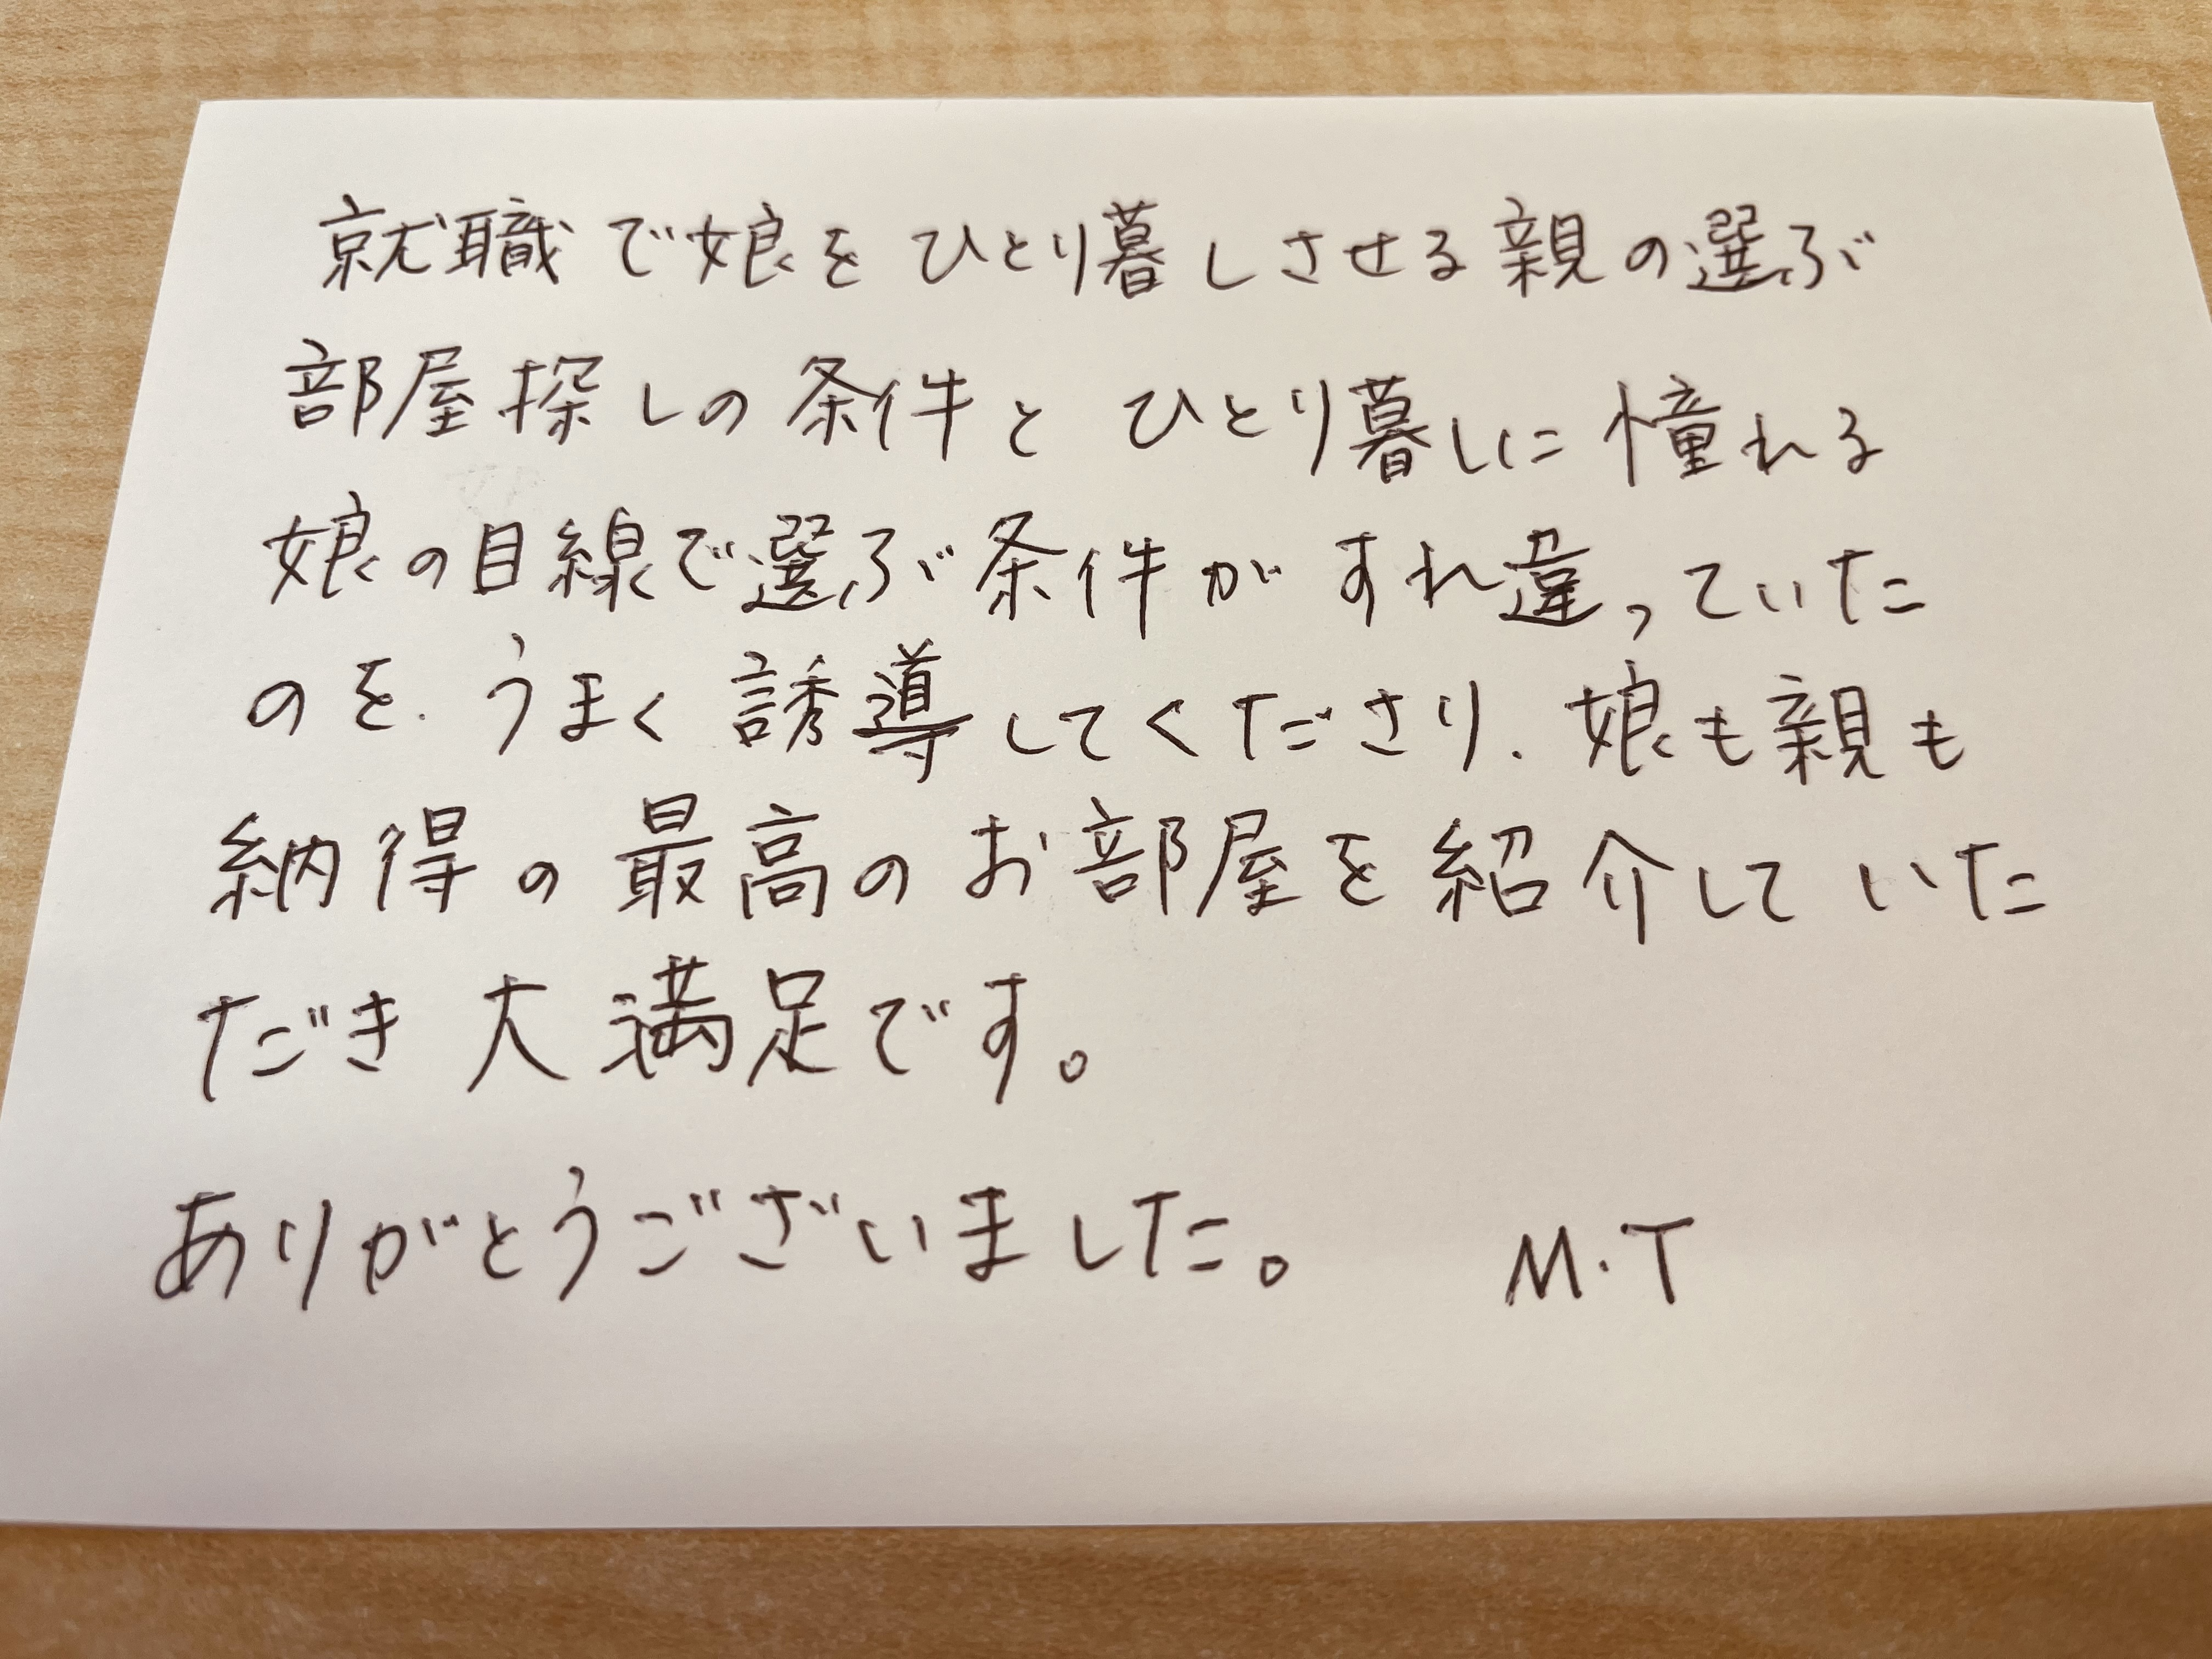 就職で娘をひとり暮しさせる親の選ぶ
部屋探しの条件とひとり暮しに憧れる
娘の目線で選ぶ条件がすれ違っていた
のを、うまく誘導してくださり、娘も親も
納得の最高のお部屋を紹介していた
だき大満足です。
ありがとうございました。 M.T